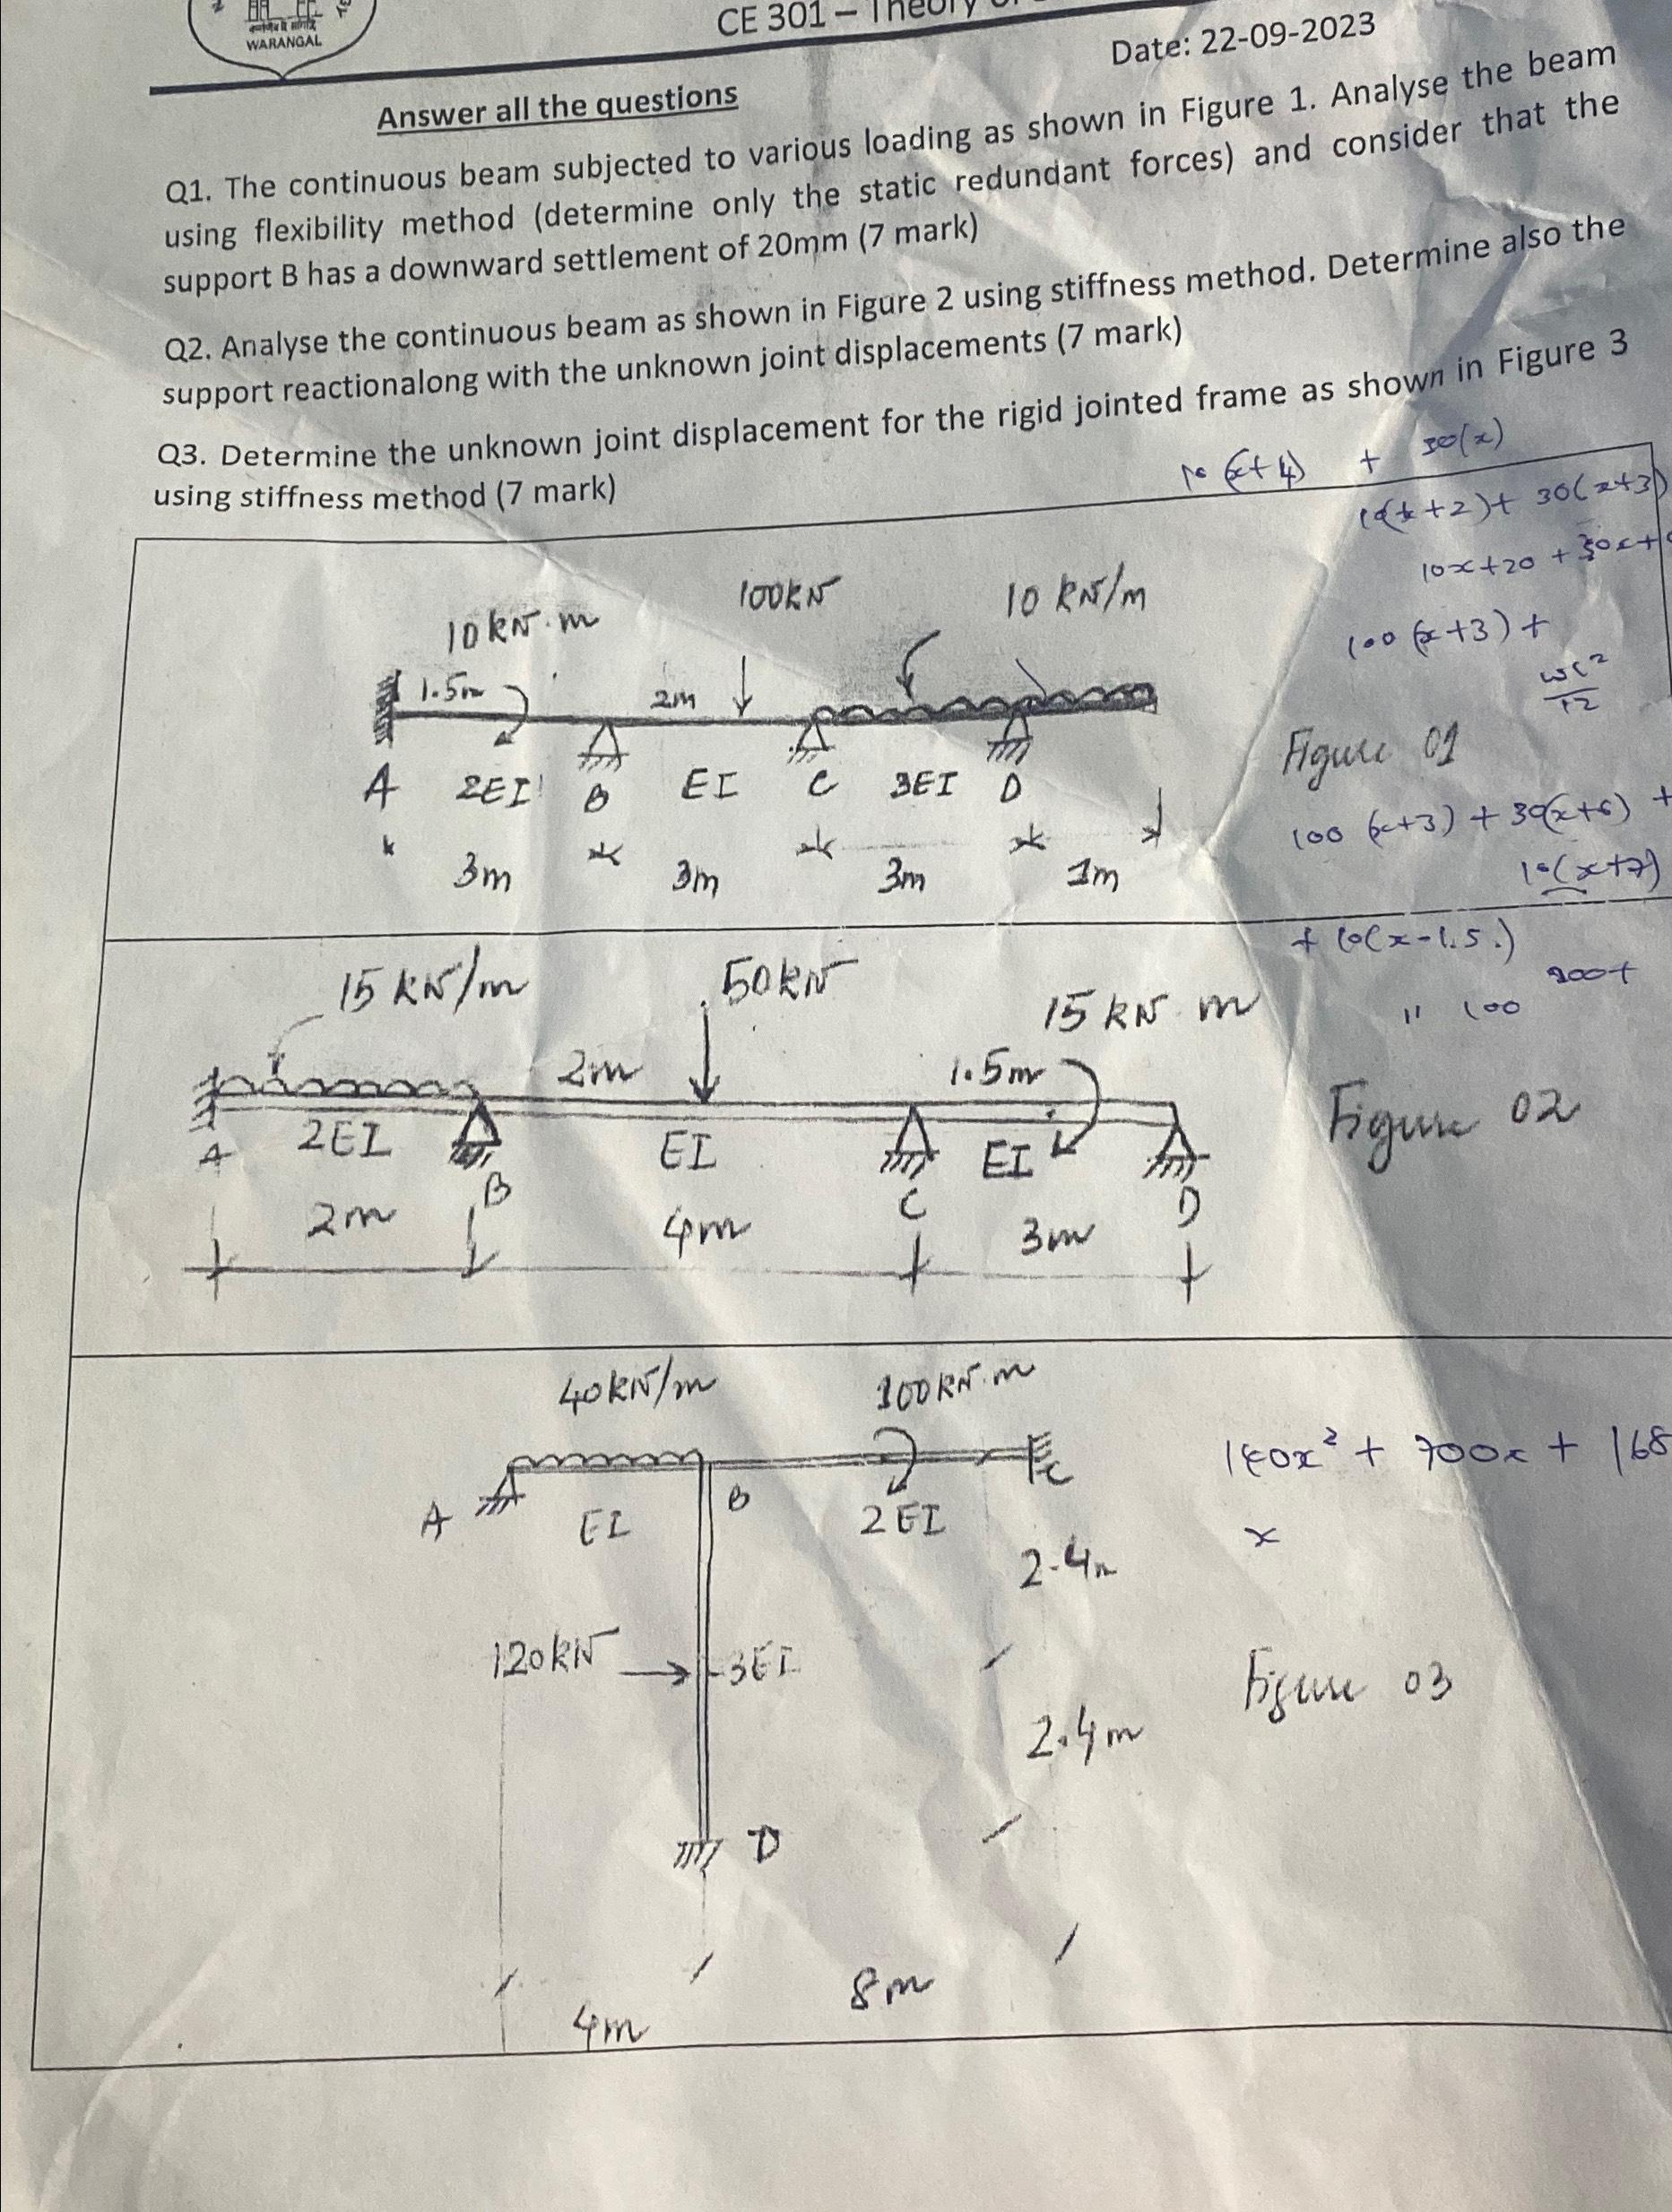 WARANGAL
CE 301 – Theory
Date: 22-09-2023
Answer all the questions
Q1. The continuous beam subjected to various loading as shown in Figure 1. Analyse the beam
using flexibility method (determine only the static redundant forces) and consider that the
support B has a downward settlement of 20mm (7 mark)
Q2. Analyse the continuous beam as shown in Figure 2 using stiffness method. Determine also the
support reactionalong with the unknown joint displacements (7 mark)
Q3. Determine the unknown joint displacement for the rigid jointed frame as shown in Figure 3
using stiffness method (7 mark)
10 (x+4) + 30(x)
10(x+2)+ 30(x+3)
10x+20 + 30x+
100 (x+3) +
wl²
12
10 kN.m
100kN
10 kN/m
1.5m
2m
A 2EI B EI C 3EI D
3m 3m 3m 1m
Figure 01
100 (x+3) + 30(x+6) +
10(x+7)
+ 10(x-1.5.)
" 100
15 kN/m
50kN
15 kN m
2m
1.5m
A 2EI B EI C EI D
2m 4m 3m
Figure 02
40kN/m
100kN.m
A EI B 2EI C
2.4m
120kN
3EI
2.4m
D
4m
8m
Figure 03
140x² + 700x + 168
x